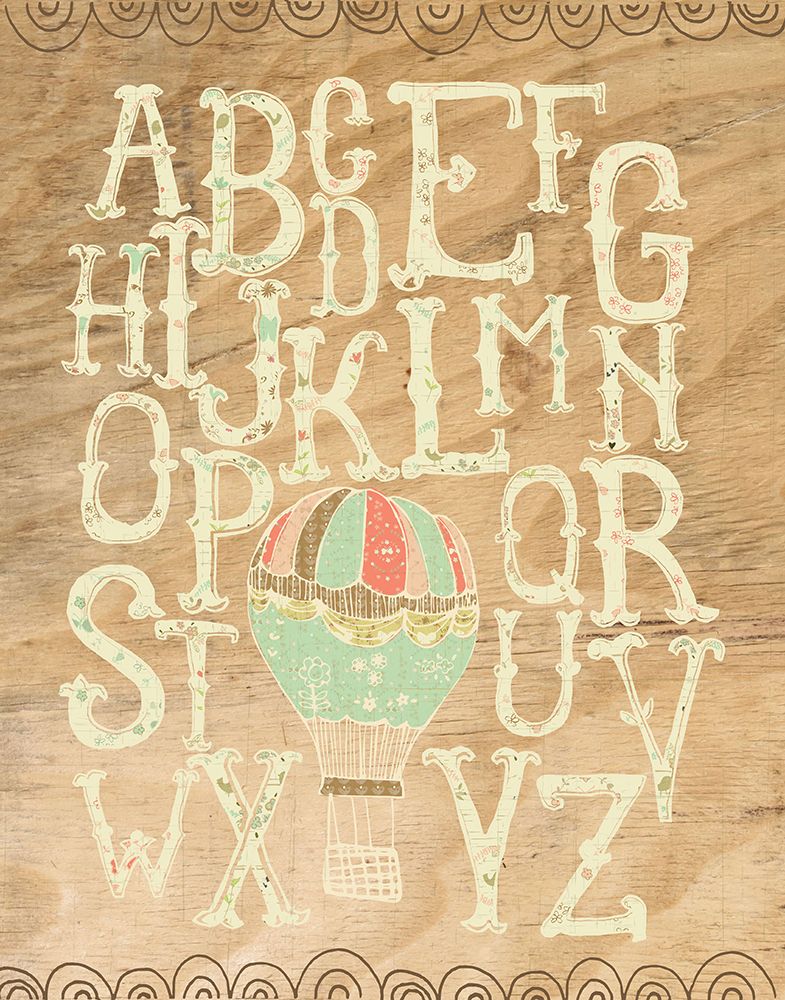 A B C D E F G
H I J K L M N
O P Q R
S T U V
W X Y Z